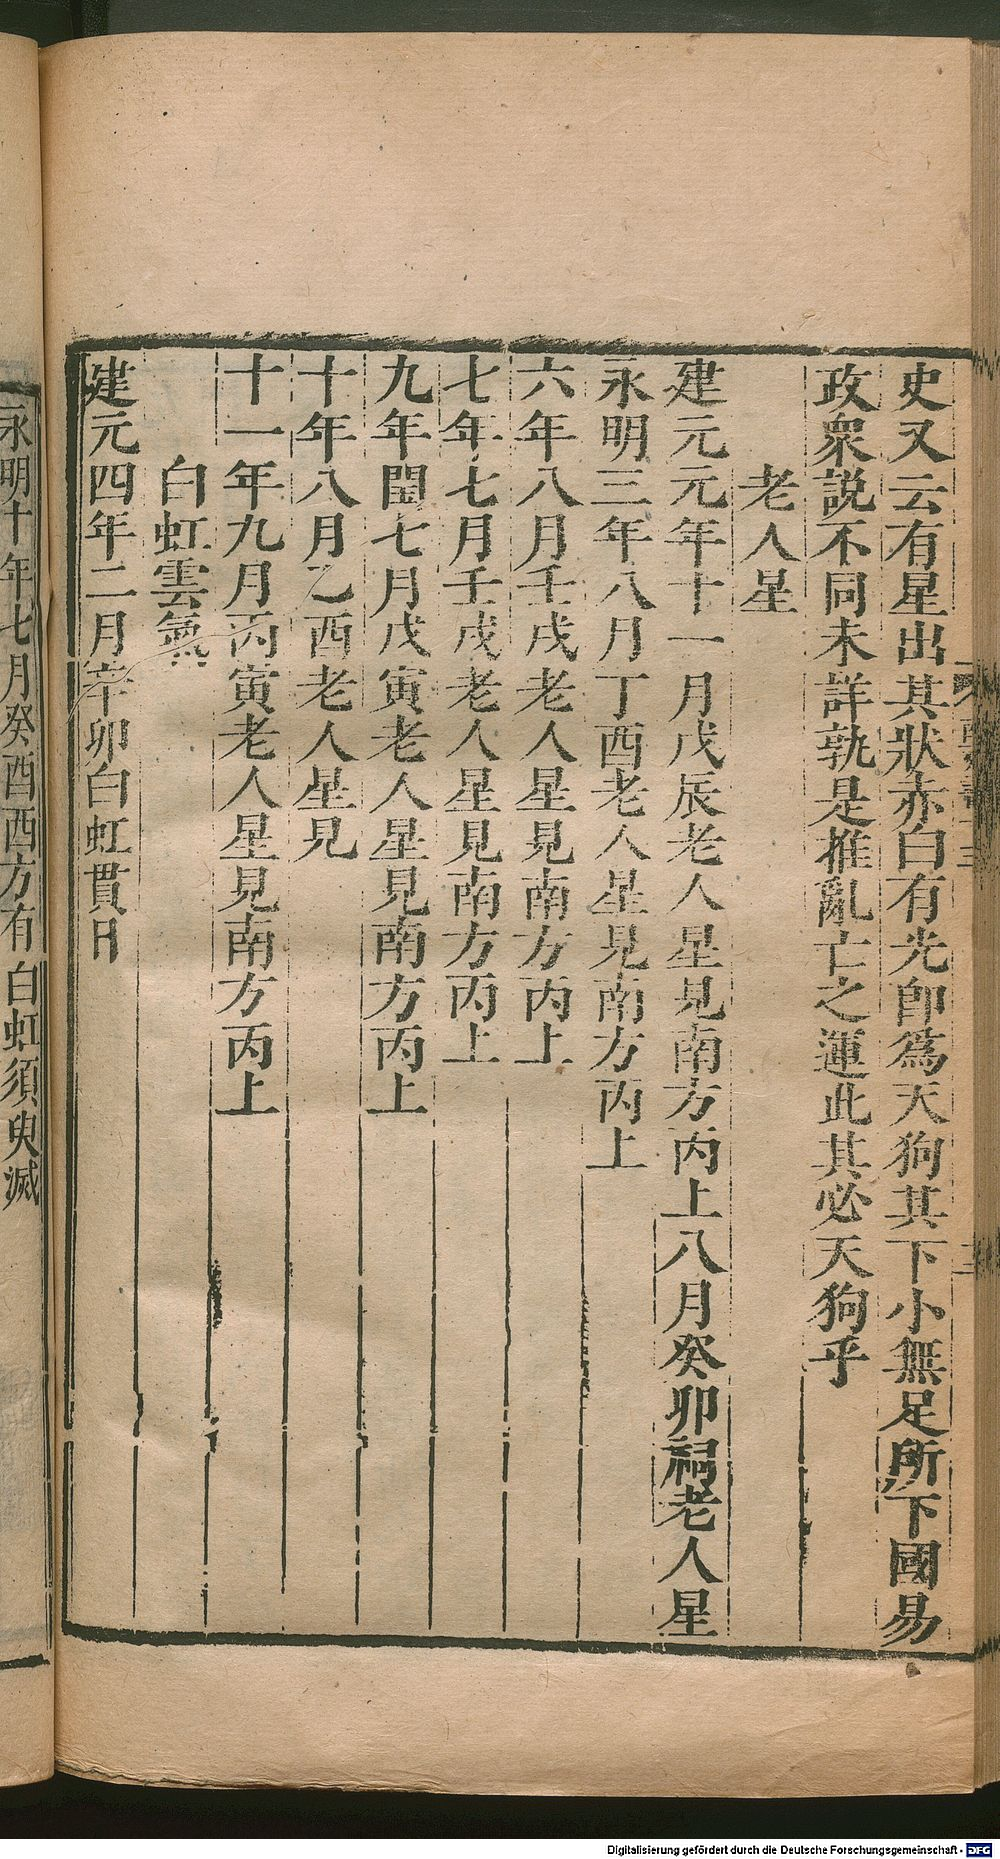 史又云有星出其狀赤白有光即爲天狗其下小無足所下國易
政衆説不同未詳孰是推亂亡之運此其必天狗乎
老人星
建元元年十一月戊辰老人星見南方丙上八月癸卯祠老人星
永明三年八月丁酉老人星見南方丙上
六年八月壬戌老人星見南方丙上
七年七月壬戌老人星見南方丙上
九年閏七月戊寅老人星見南方丙上
十年八月乙酉老人星見
十一年九月丙寅老人星見南方丙上
白虹雲氣
建元四年二月辛卯白虹貫日
永明十年七月癸酉西方有白虹須臾滅
Digitalisierung gefördert durch die Deutsche Forschungsgemeinschaft - DFG